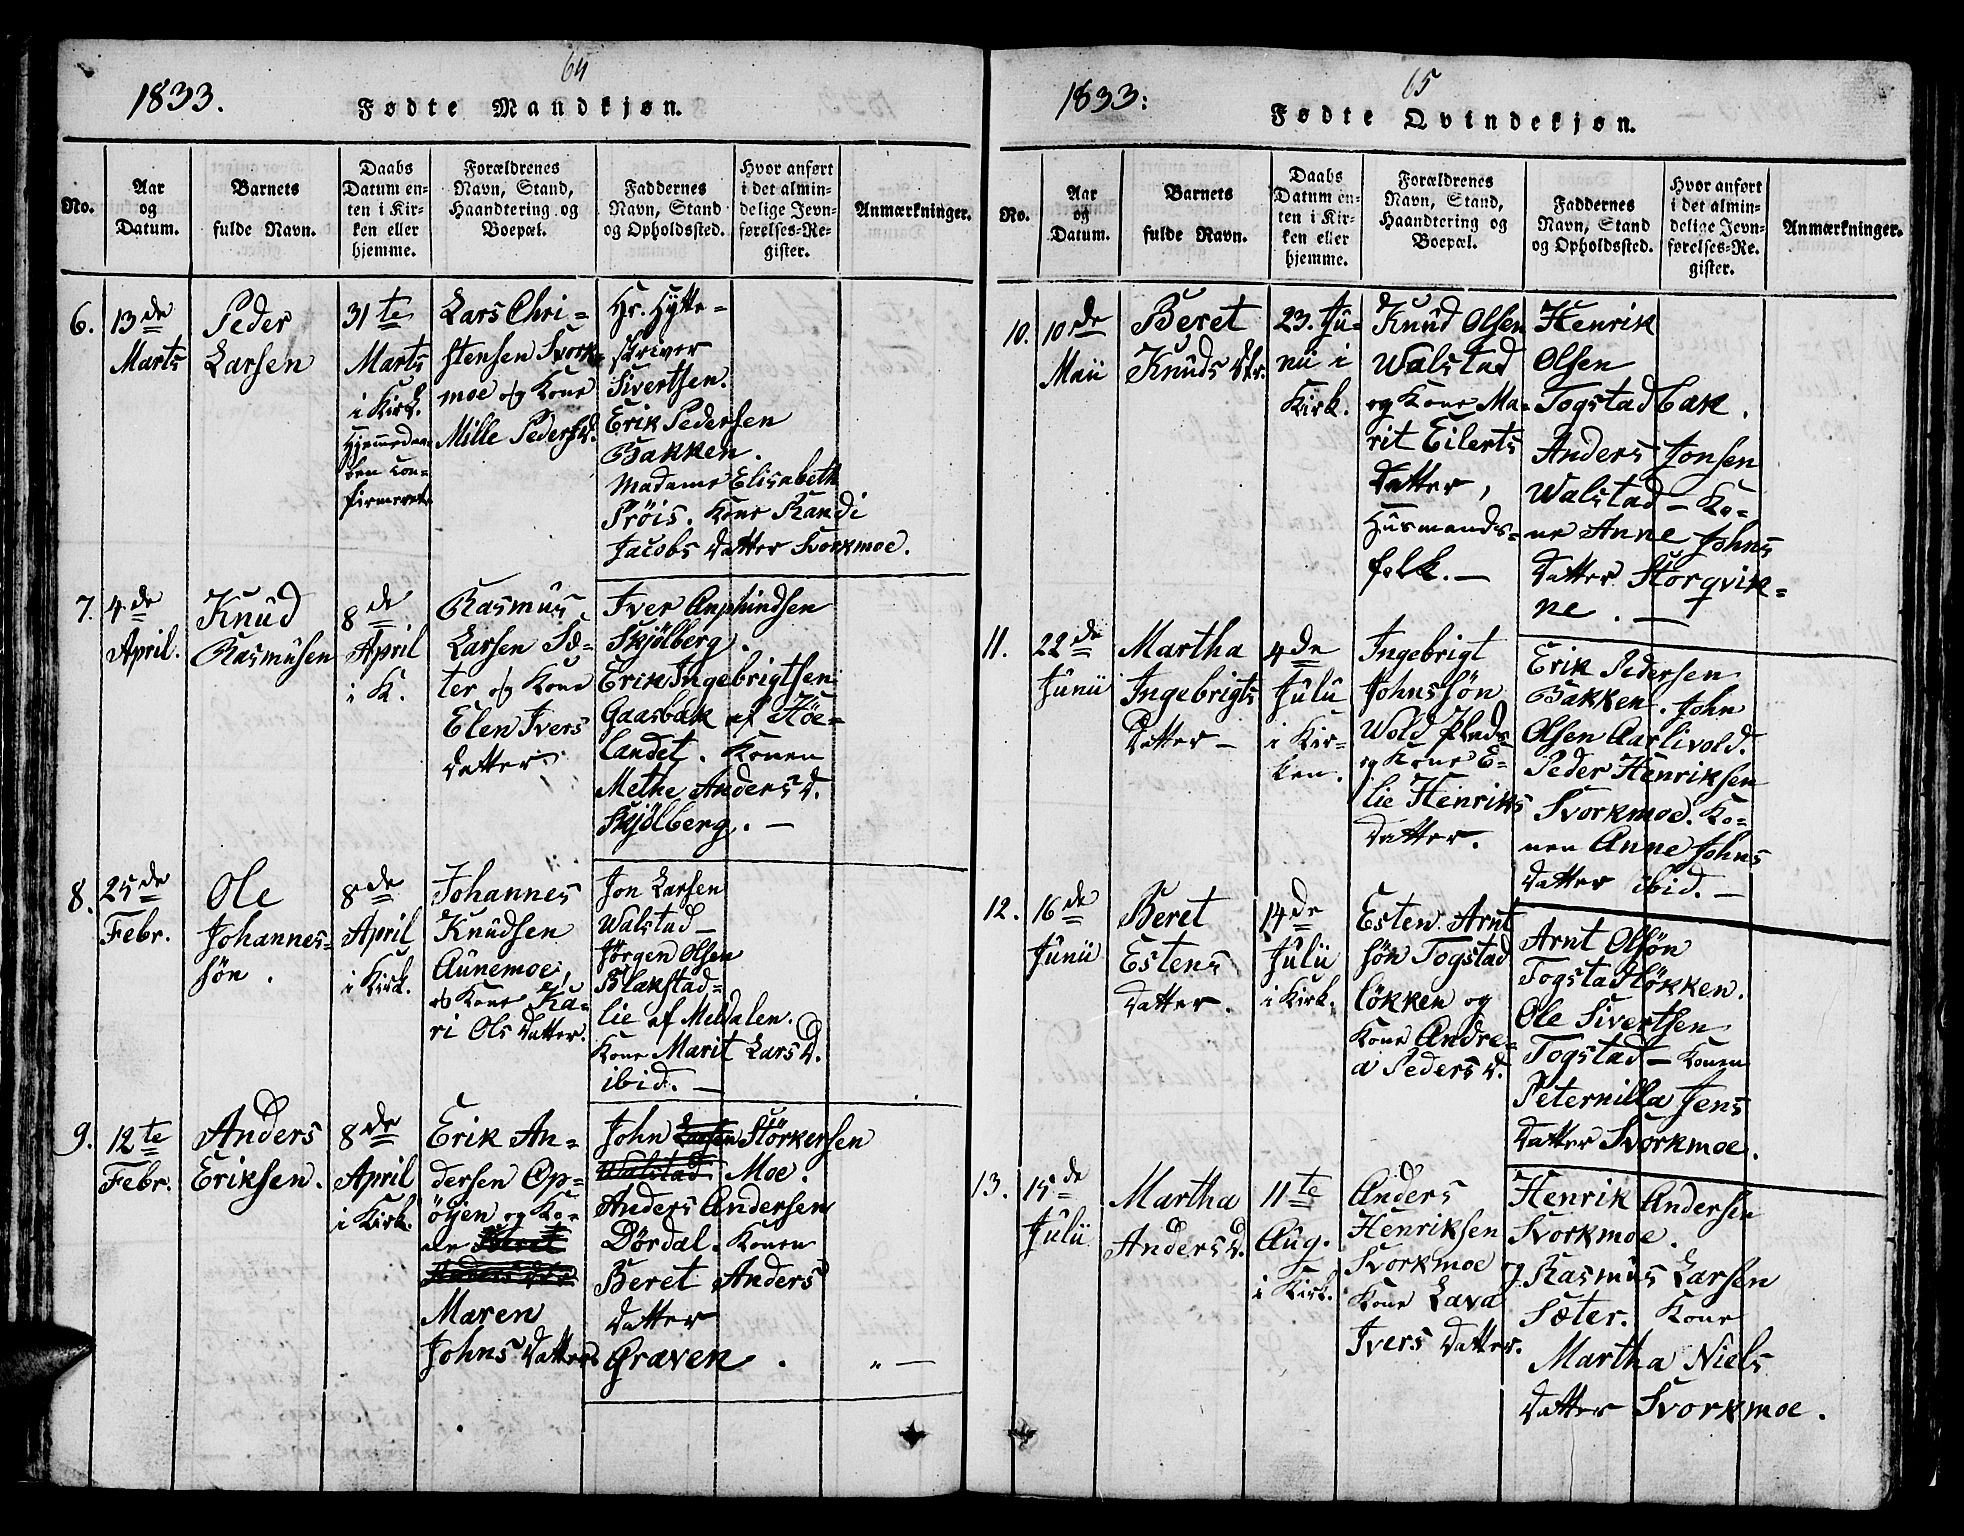 64
1833.
Fødte Mandkjøn.
No.
Aar
og
Datum.
Barnets
fulde Navn.
Daabs
Datum en-
ten i Kir-
ken eller
hjemme.
Forældrenes
Navn, Stand,
Haandtering og
Boepæl.
Faddernes
Navn, Stand
og Opholdssted.
Hvor anført
i det almin-
delige Jevn-
førelses-Re-
gister.
Anmærkninger.
6.
13de
Marts
Peder
Larsen
31te
Marts
i Kirk.
Hjemmedaa-
ben con-
firmeret
Lars Chri-
stensen Svork-
moe og Kone
Mille Peders D.
Hr. Hytte-
skriver
Sivertsen.
Erik Pedersen
Bakken.
Madame Elisabeth
Prøis. Kone Randi
Jacobs Datter Svorkmoe.
7.
4de
April.
Knud
Rasmusen
8de
April
i K.
Rasmus
Larsen Sæ-
ter og Kone
Elen Ivers
Datter
Iver Amphindsen
Skjölberg.
Erik Ingebrigtsen
Gaasbak af Höe-
landet. Konen
Methe Anders D.
Skjölberg. —
8.
25de
Febr.
Ole
Johannes-
sön.
8de
April
i Kirk.
Johannes
Knudsen
Aunemoe,
og Kone Ka-
ri Ols Datter.
Jon Larsen
Walstad —
Jörgen Olsen
Blakstad-
lie af Meldalen.
Kone Marit Lars D.
ibid. —
9.
12te
Febr.
Anders
Eriksen.
8de
April
i Kirk.
Erik An-
dersen Op-
öyen og Ko-
ne Beret
Anders Dtr
Maren
Johns Datter
John Larsen Störkersen
Walstad Moe.
Anders Andersen
Dördal. Konen
Beret Anders
Datter
Græven. " —
65
1833:
Fødte Qvindekjøn.
No.
Aar
og
Datum.
Barnets
fulde Navn.
Daabs
Datum en-
ten i Kir-
ken eller
hjemme.
Forældrenes
Navn, Stand,
Haandtering og
Boepæl.
Faddernes
Navn, Stand
og Opholdssted.
Hvor anført
i det almin-
delige Jevn-
førelses-Re-
gister.
Anmærkninger.
10.
10de
Maii
Beret
Knuds Dtr.
23. Ju-
nii i
Kirk.
Knud Olsen
Walstad
og Kone Ma-
rit Eilerts
Datter,
Husmands-
folk. —
Henrik
Olsen
Togstadbak.
Anders Jonsen
Walstad — Ko-
ne Anne Johns
Datter Storqvik-
ne. —
11.
22de
Junii
Martha
Ingebrigts
Datter —
4de
Julii
i Kir-
ken.
Ingebrigt
Johnssön
Wold Plads
og Kone E-
lie Henriks
Datter.
Erik Pedersen
Bakken. John
Olsen Aarlivold.
Peder Henriksen
Svorkmoe. Ko-
nen Anne Johns
Datter ibid. —
12.
16de
Junii
Beret
Estens
Datter.
14de
Julii
i Kirk.
Esten Arnt
sön Togstad
lökken og
Kone Andre-
a Peders D.
Arnt Olsön
Togstadlökken.
Ole Sivertsen
Togstad — Konen
Peternilla Jens
Datter Svorkmoe.
13.
15de
Julii
Martha
Anders D.
11te
Aug.
i Kirk.
Anders
Henriksen
Svorkmoe og
Kone Lava
Ivers Datter.
Henrik Andersen
Svorkmoe.
Rasmus Larsen
Sæter. Kone
Martha Niels
Datter Svorkmoe.